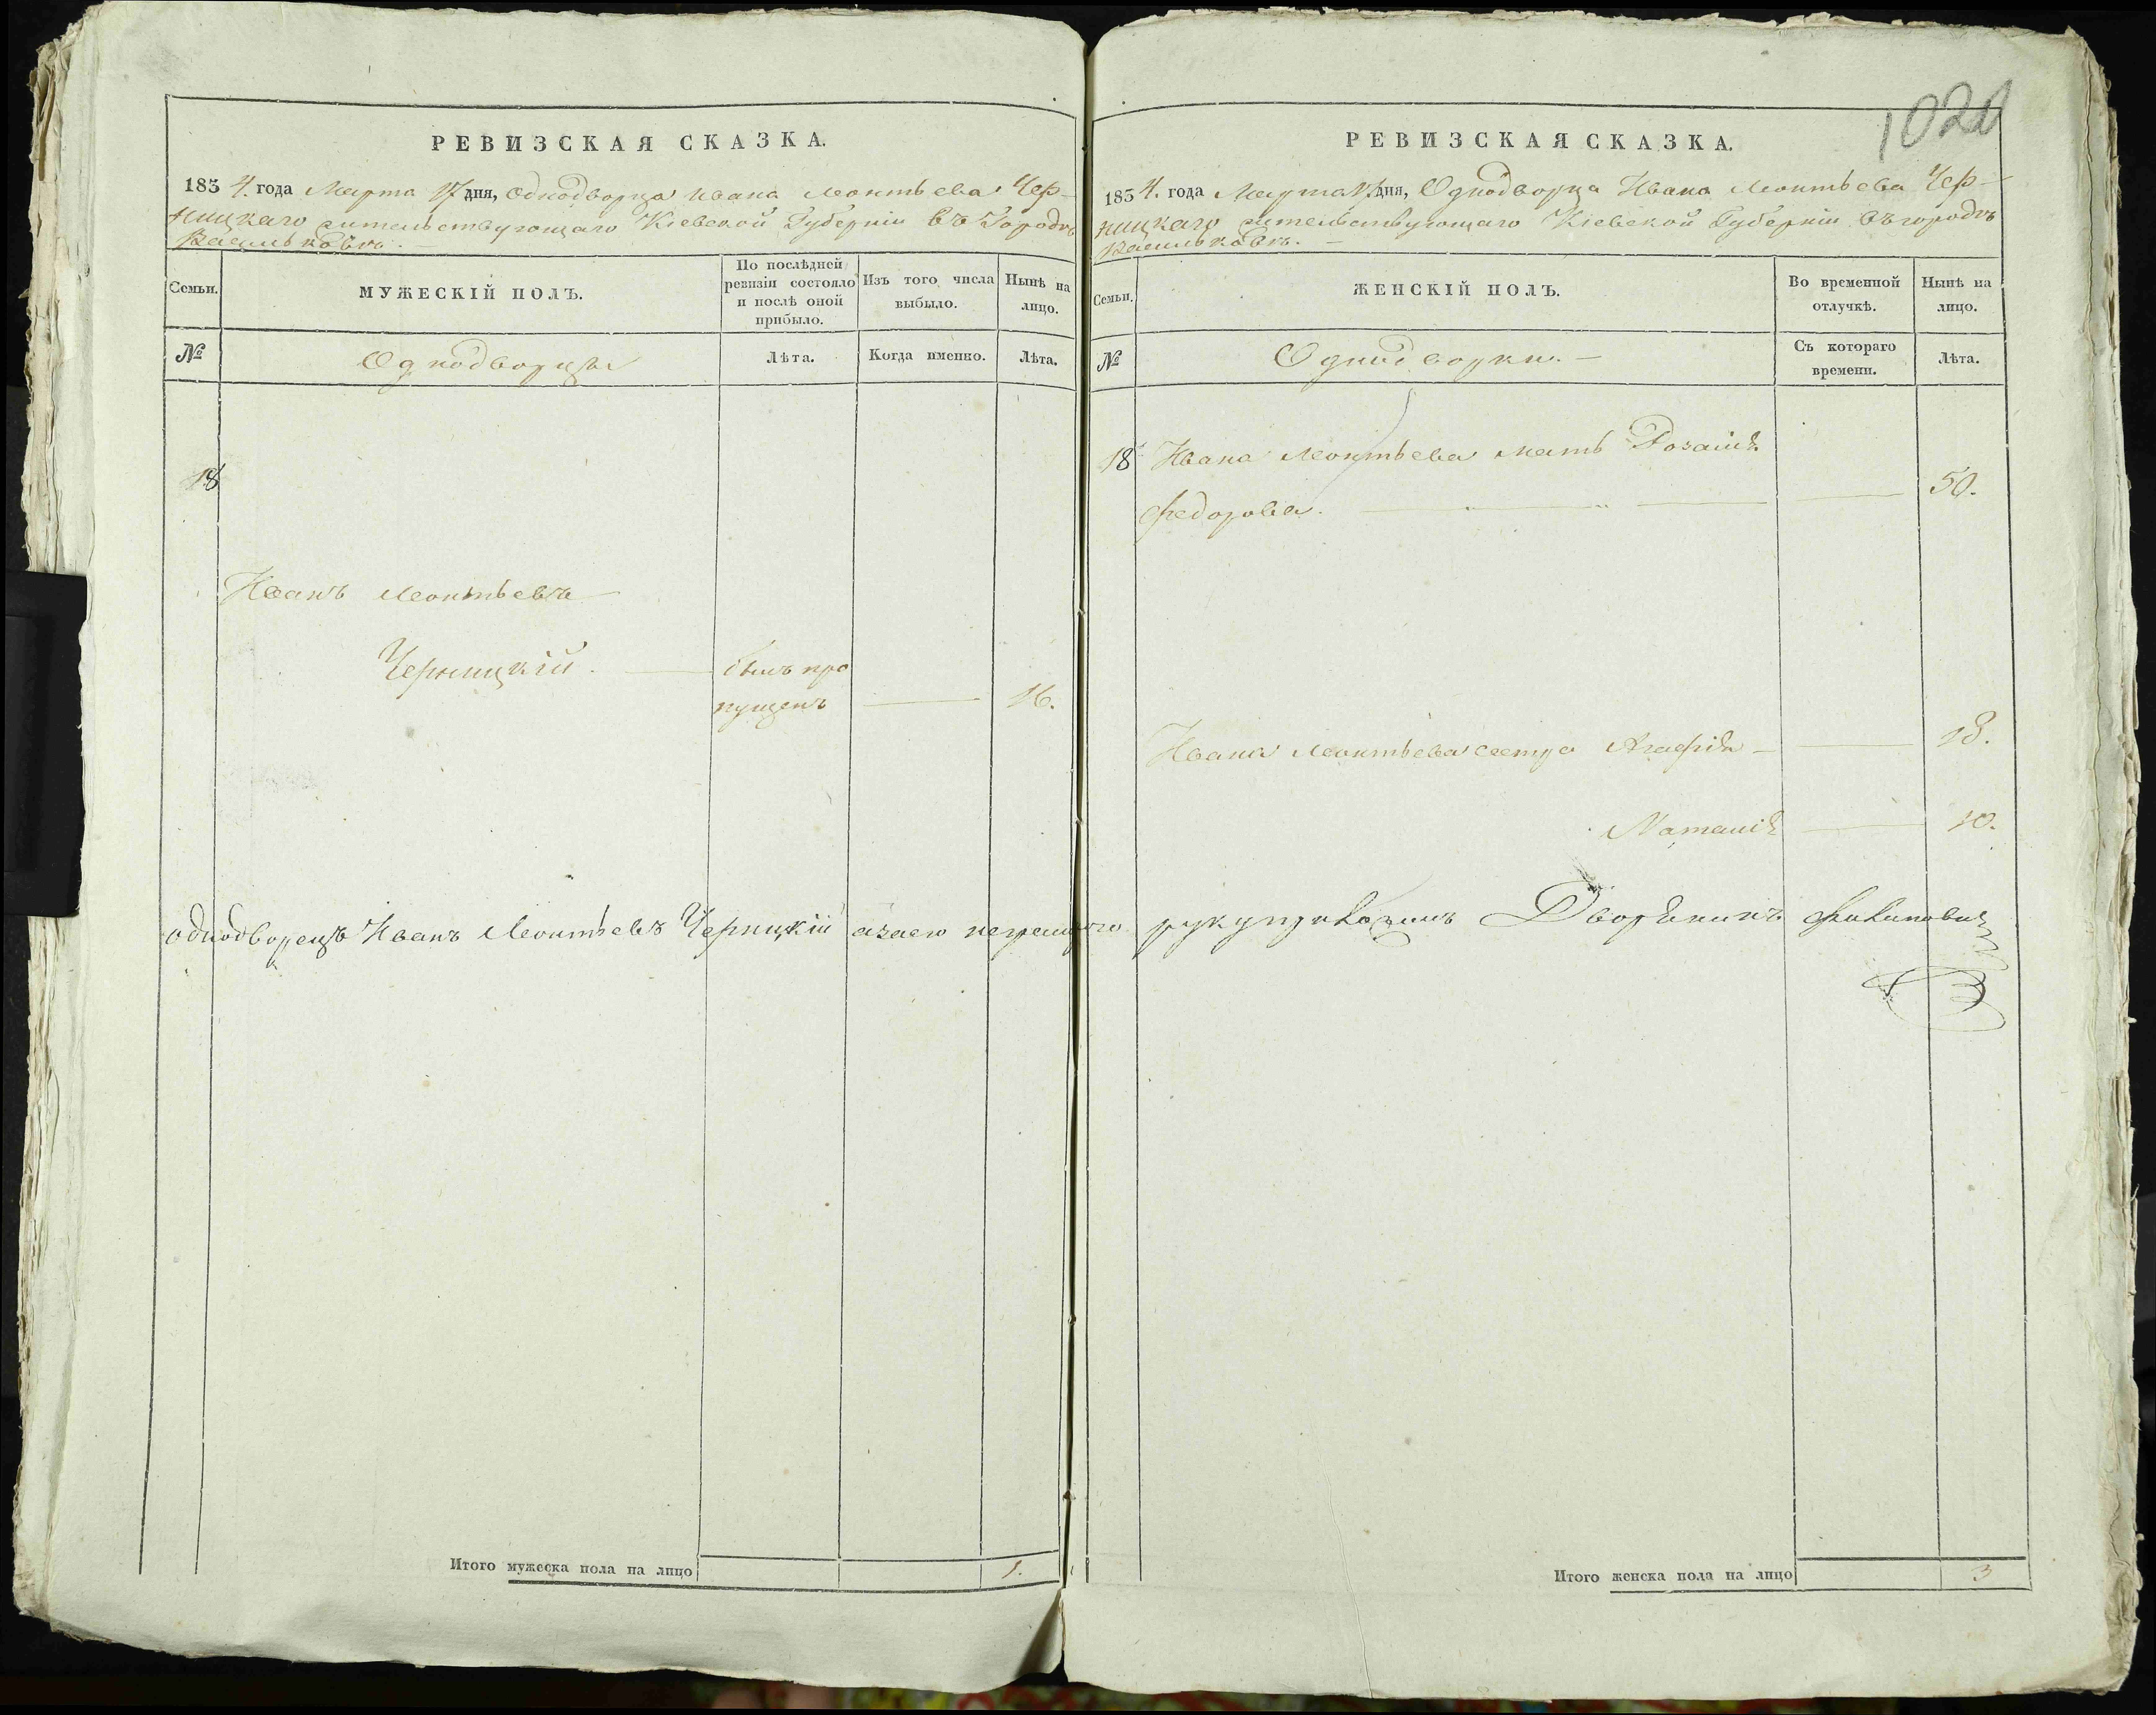 РЕВИЗСКАЯ СКАЗКА.
1854. года Марта 17 дня, Однодворца Ивана Леонтьева Чер-
ницкаго жительствующаго Кіевской Губерніи въ Городѣ
Васильковѣ. —
Семьи.
МУЖЕСКІЙ ПОЛЪ.
По послѣдней
ревизіи состояло
и послѣ оной
прибыло.
Изъ того числа
выбыло.
Нынѣ на
лицо.
№
Однодворцы
Лѣта.
Когда именно.
Лѣта.
18
Иванъ Леонтьевъ
Черницкій. — былъ про
пущенъ — 16.
Однодворецъ Иванъ Леонтьевъ Черницкій азаего неграмотного
Итого мужеска пола на лицо 1.
1020
РЕВИЗСКАЯ СКАЗКА.
1854. года Марта 17 дня, Однодворца Ивана Леонтьева Чер-
ницкаго жительствующаго Кіевской Губерніи въ городѣ
Васильковѣ. —
Семьи.
ЖЕНСКІЙ ПОЛЪ.
Во временной
отлучкѣ.
Нынѣ на
лицо.
№
Однодворки. —
Съ котораго
времени.
Лѣта.
18 Ивана Леонтьева мать Розалія
Федорова. — 50.
Ивана Леонтьева сестра Агафія — 18.
Наталія — 10.
Дворянинъ
Итого женска пола на лицо 3